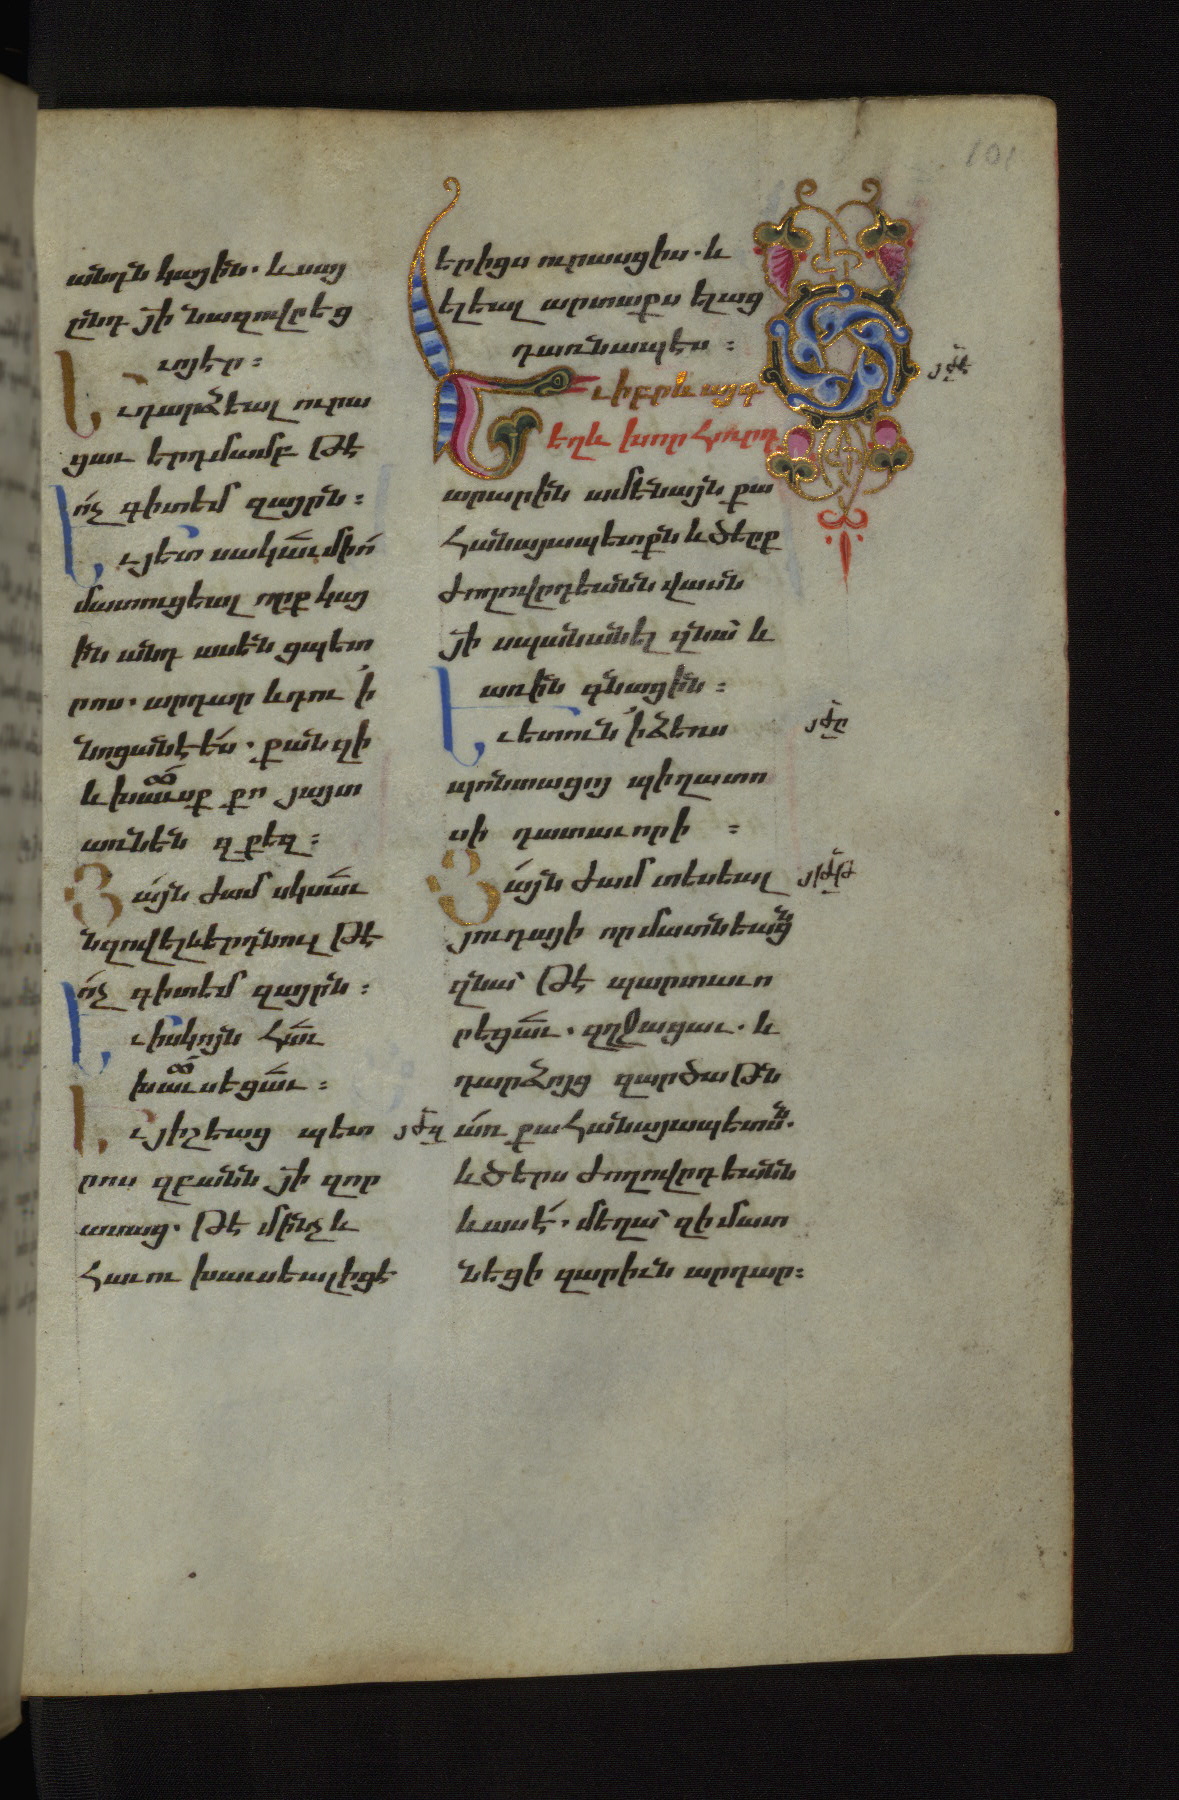 101
անդն կային. և սայ
ընդ յի նազովրեց
ւոյեր։
Եւ դարձեալ ուրա
ցաւ երդմամբ թէ
ոչ գիտեմ զայրն։
Եւ յետ սակաւ միո
մատուցեալ որք կայ
ին անդ ասեն ցպետ
րոս. արդար և դու ի
նոցանէ ես. քանզի
և խաւսք քո յայտ
առնեն զքեզ։
Յայն ժամ սկսաւ
նզովել և երդնուլ թէ
ոչ գիտեմ զայրն։
Եւ իսկոյն հաւ
խաւսեցաւ։
Եւ յիշեաց պետ
րոս զբանն յի զոր
ասաց. թէ մինչև
հաւու խաւսեալ իցէ
երիցս ուրասցիս. և
ելեալ արտաքս ելաց
դառնապէս։
Եւ իբրև այգ
եղև խորհուրդ
արարին ամենայն քա
հանայապետքն և ծերք
ժողովրդեանն վասն
յի սպանանել զնա և
առին գնացին։
Եւ ետուն ի ձեռս
պոնտացոյ պիղատո
սի դատաւորի ։
Յայն ժամ տեսեալ
յուդայի որ մատնեացն
զնա թէ պարտաւո
րեցաւ. զղջացաւ. և
դարձոյց զարծաթն
առ քահանայապետսն.
և ծերս ժողովրդեանն
և ասէ. մեղա զի մատ
նեցի զարիւն արդար։
յժզ
յժէ
յժը
յժթ